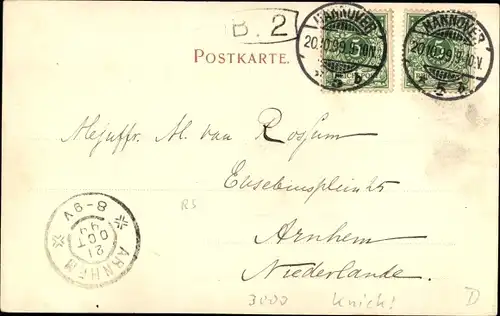 B. 2
HANNOVER
20.10.99.9-10V.
* 5 b
HANNOVER
20.10.99.9-10.V.
* 5 b
5
POSTKARTE.
Mejuffr. M. van Rossum
Eusebiusplein
Arnhem
Niederlande.
ARNHEM
21
OCT
99
8-9V
RS
3000 Knick! D